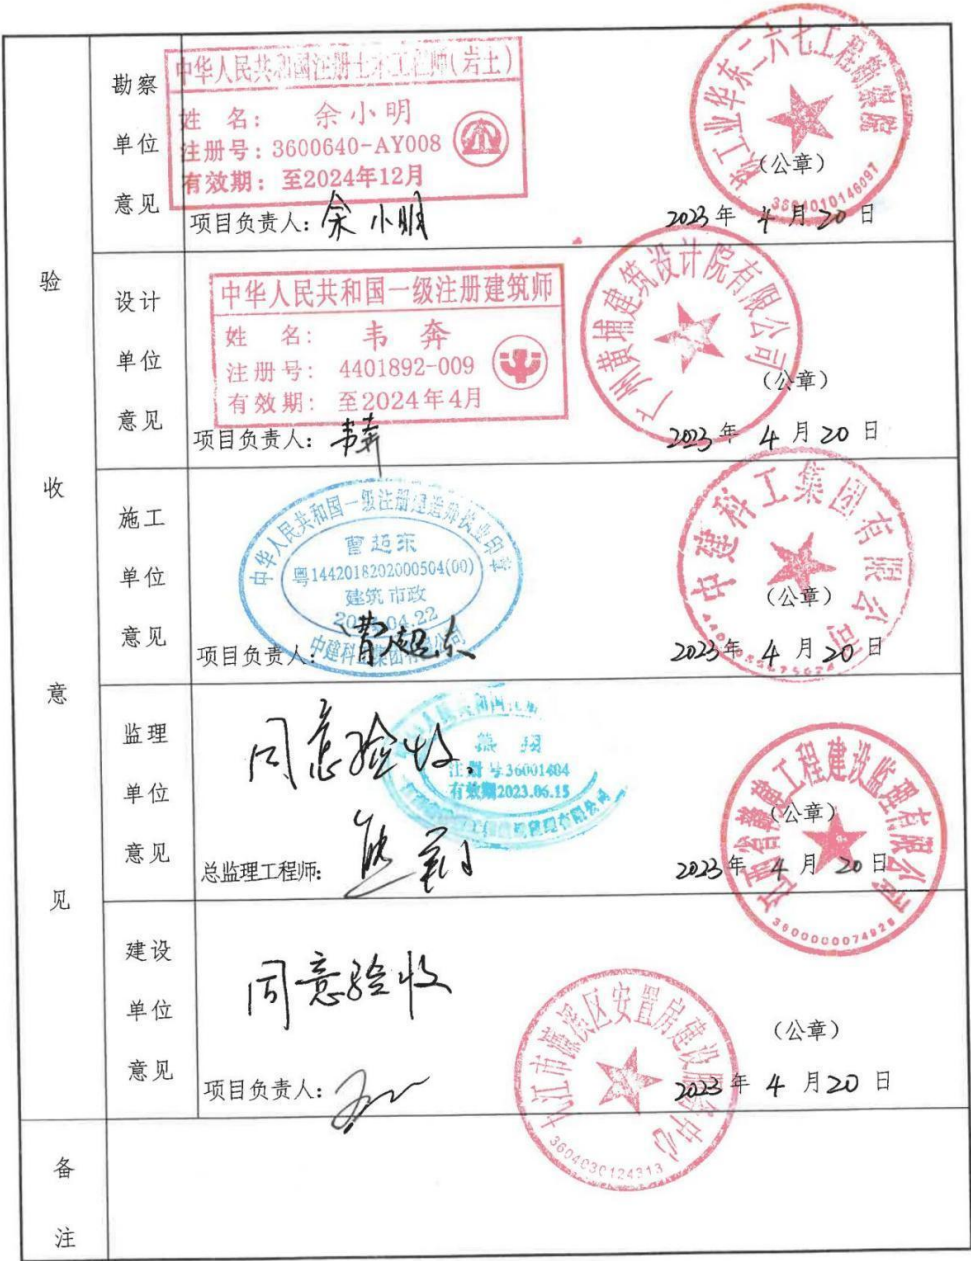 验收意见
勘察单位意见
中华人民共和国注册土木工程师(岩土)
姓 名: 余小明
注册号: 3600640-AY008
有效期: 至2024年12月
项目负责人: 余小明
核工业华东二六七工程勘察院
(公章)
2023年 4月20日
设计单位意见
中华人民共和国一级注册建筑师
姓 名: 韦奔
注册号: 4401892-009
有效期: 至2024年4月
项目负责人: 韦奔
广州黄埔建筑设计院有限公司
(公章)
2023年 4月20日
施工单位意见
中华人民共和国一级注册建造师执业印章
曹超东
粤1442018202000504(00)
建筑 市政
中建科工集团有限公司
项目负责人: 曹超东
中建科工集团有限公司
(公章)
2023年 4月20日
监理单位意见
同意验收.
熊翔
注册号36001404
有效期2023.06.15
总监理工程师: 熊翔
江西省赣建工程建设监理有限公司
3600000074928
(公章)
2023年 4月20日
建设单位意见
同意验收
项目负责人:
九江市濂溪区安置房建设服务中心
3604030124313
(公章)
2023年 4月20日
备注